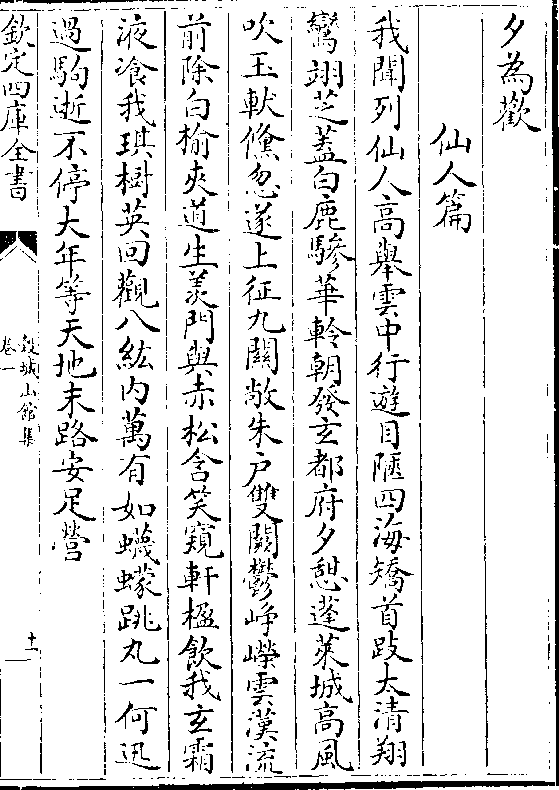 夕為歡
仙人篇
我聞列仙人高舉雲中行遊目隘四海矯首跂太清翔
鸞翊芝蓋白鹿驂華軨朝發玄都府夕憇蓬萊城高風
吹玉軑儵忽遂上征九關敞朱户雙闕鬱崢嶸雲漢流
前除白榆夾道生羡門與赤松含笑窺軒楹飲我玄霜
液飡我琪樹英回觀八紘内萬有如蠛蠓跳丸一何迅
過駒逝不停大年等天地末路安足營
欽定四庫全書
穀城山館集
卷一
十一